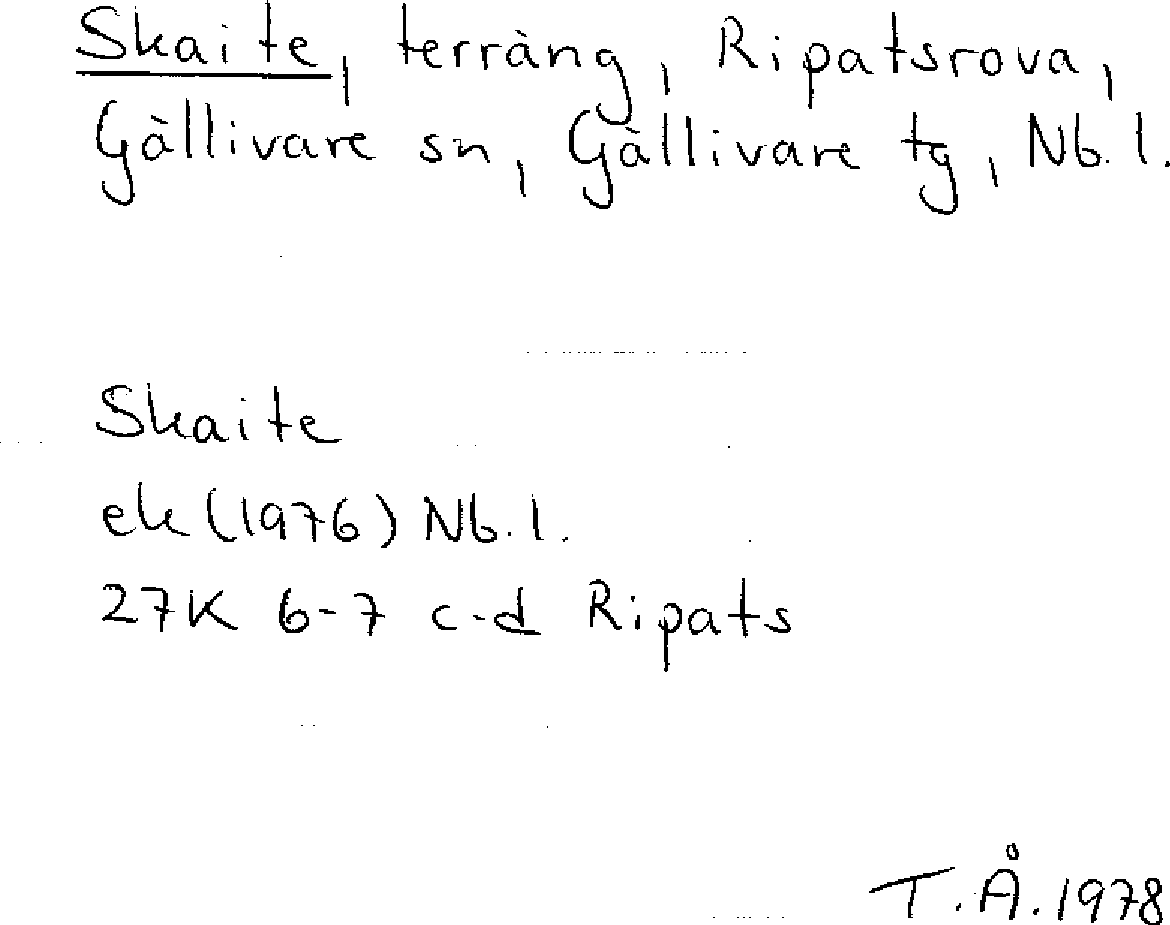 Skaite, terräng, Ripatsrova,
Gällivare sn, Gällivare tg, Nb. l.
Skaite
ek (1976) Nb. l.
27K 6-7 c-d Ripats
T.Å. 1978